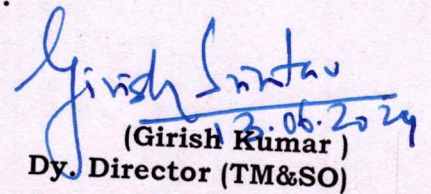 Girish
13.06.2024
(Girish Kumar )
Dy. Director (TM&SO)